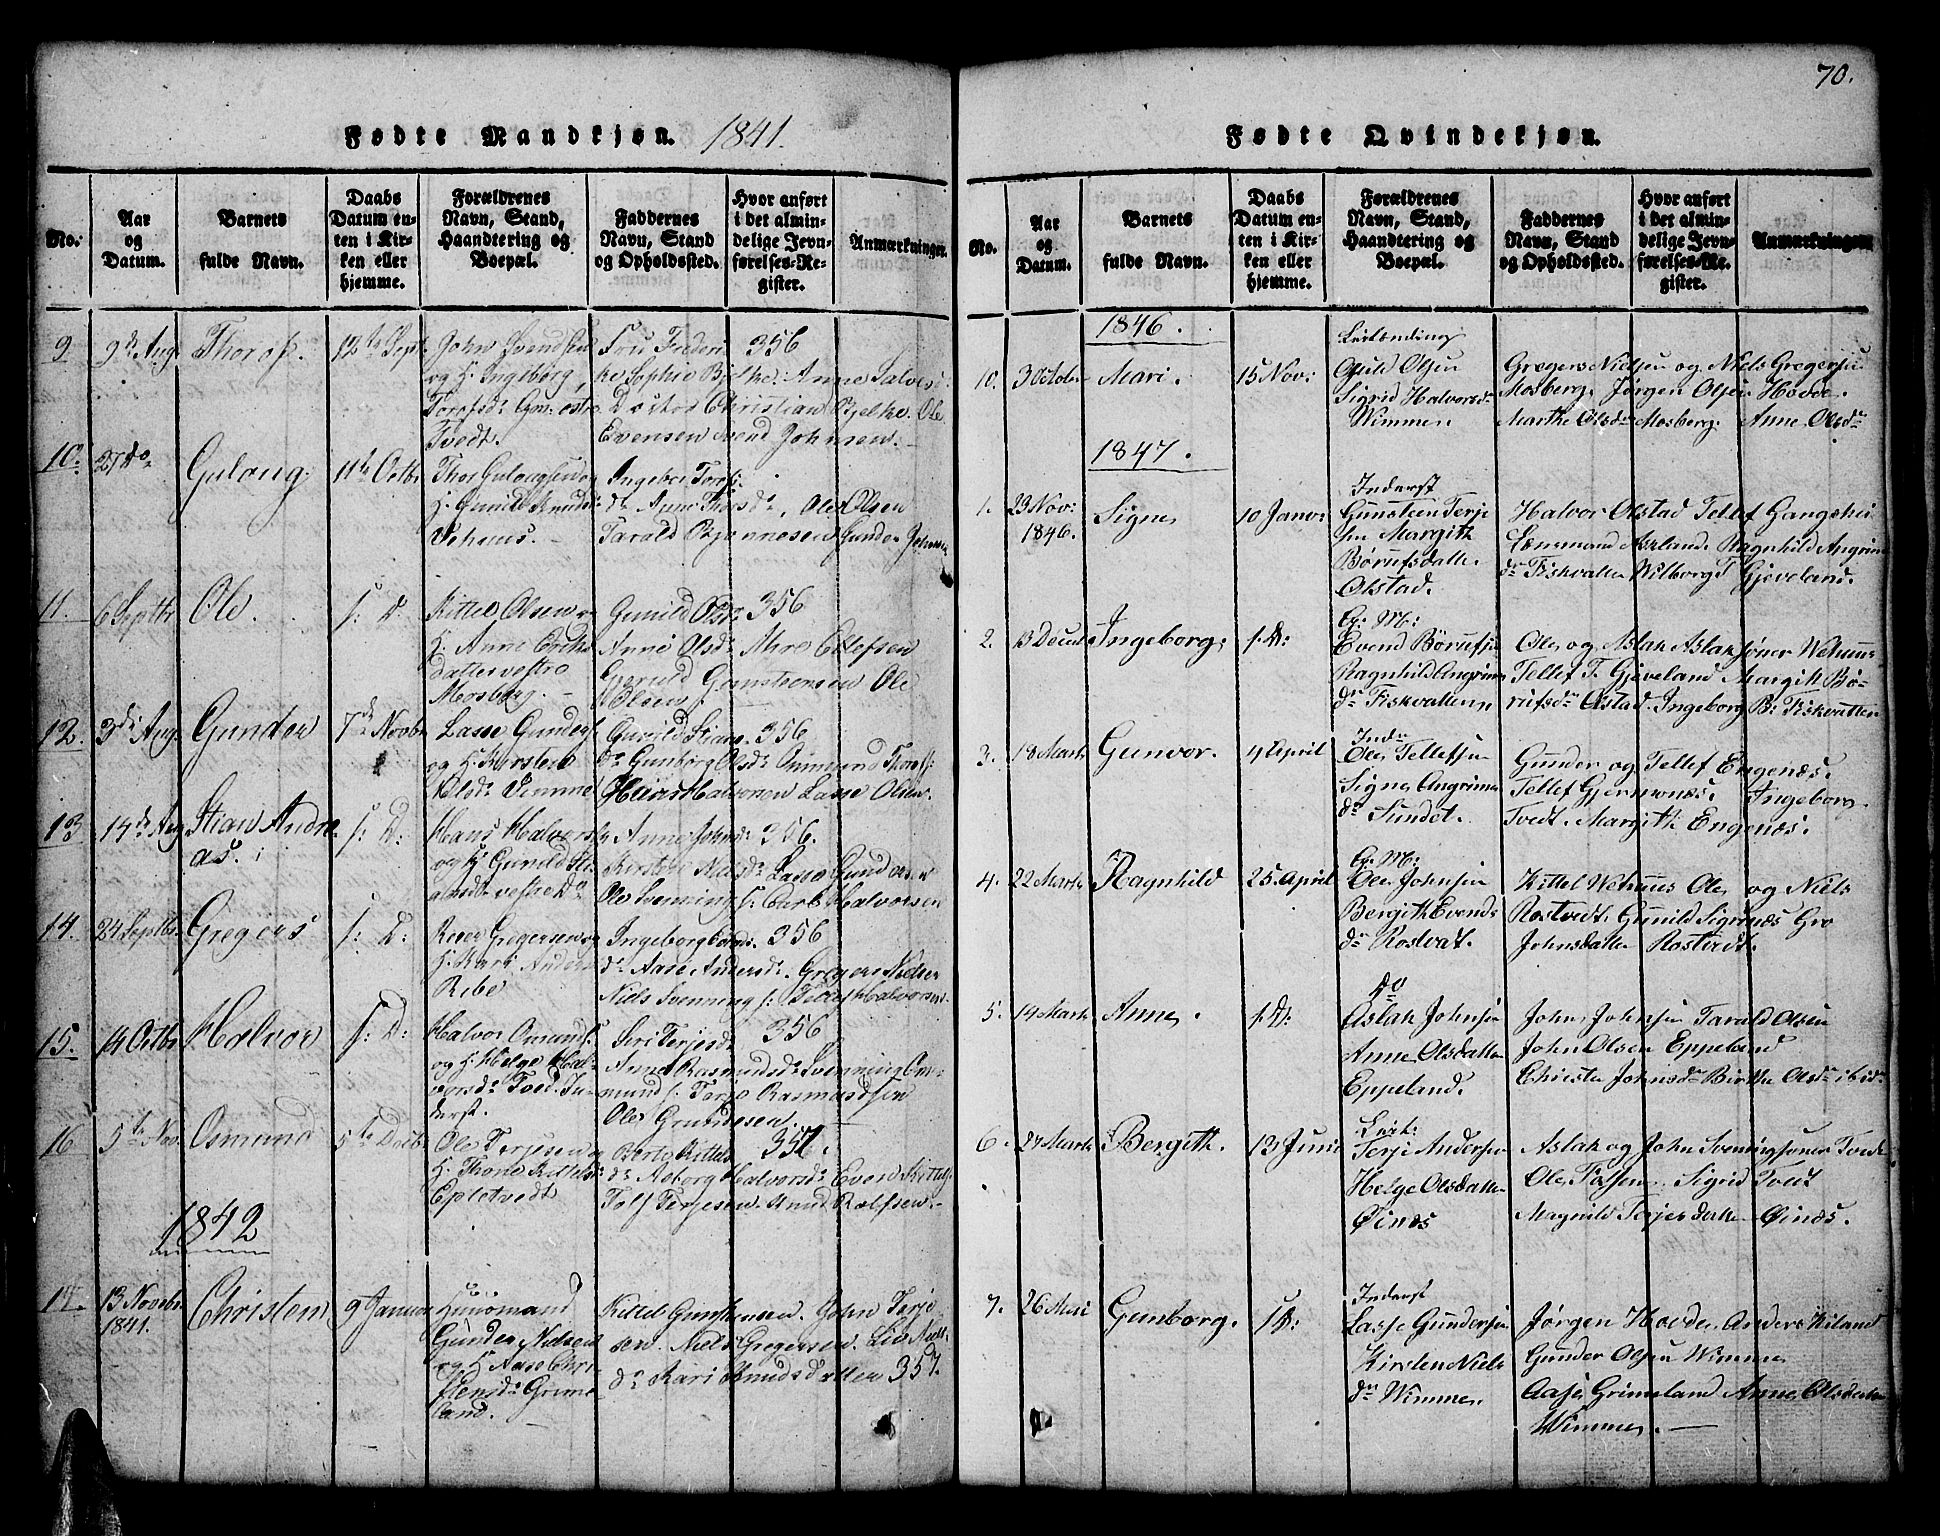 70.
Fødte Mandkjøn. 1841.
No.
Aar
og
Datum.
Barnets
fulde Navn.
Daabs
Datum en-
ten i Kir-
ken eller
hjemme.
Forældrenes
Navn, Stand,
Haandtering og
Boepæl.
Faddernes
Navn, Stand
og Opholdssted.
Hvor anført
i det almin-
delige Jevn-
førelses-Re-
gister.
Anmærkninger.
9
9de Aug
Thorof.
12te Sept.
John Svendsen
og H. Ingeborg
Torofsdr
Tvedt.
Fru Frederi 356
ke Sophie Bjelke. Anne Salves
Doctor Christian Bjelke. Ole
Evensen Svend Johnsen.
10.
27 do
Gulong.
11te Octbr
Thor Gulongsen og
H. Gunild Knuds
Vehuus.
Ingebor Torofs
dr Anne Thorsdr, Ole Olsen
Tarald Bjønnesen Gunder Johnsen
11.
6 Septbr
Ole.
s. D.
Kittel Olsen og
H. Anne
datter vestre
Mosberg.
Gunild Olsdr 356
Anne Olsdr Ahre Ellefsen
Gjeruld Gunstensen Ole
Olsen.
12.
3di Aug
Gunder
7de Novbr
Lasse Gunders
og H. Kirsten
Nilsdr Vimme
Gunild Stians 356
dr Gunborg Olsdr Omund Thorofs
Halvorsen Lasse Olsen.
13
14de Aug
Stian Andre
as.
s: D:
Hans Halvors
og H: Gunild Sti
ansdr vestre do
Anne Johnsdr 356.
Kirsten Nilsdr Lasse Gundersen
Ole Svenning s. Halvorsen
14.
24 Septbr.
Gregers
s: D:
Reier Gregersen og
H: Kari Anders
Ribe
Ingeborg 356
dr Aase Andersdr. Gregers Nielsen
Niels Svenning s: Tellef Halvorsen
15.
14 Octbr
Halvor
s: D:
Halvor Omunds
og H Helge Hal-
vorsdr Tved. In-
derst.
Siri Terjesdr 356
Anne Rasmusdr Svenning Om-
mund s. Terje Rasmussen
Ole Gundersen.
16
5te Nov.
Osmund
5te Decbr
Ole Terjesen og
H. Thone Kittels
Epletvedt
Berte Kittels 357.
dr Aaborg Halvorsdr Even Kittels
Tolf Terjesen. Knud Rolfsen.
1842
17.
13 Novbr.
1841.
Christen
9 Januar
Huusmand
Gunder Nielsen
og H. Aase Chri-
stensdr Grime-
land.
Kittel Gunstensen. John Terje-
sen. Niels Gregersen. Liv Niels
dr Kari Knudsdatter 357.
Fødte Qvindekjøn.
No.
Aar
og
Datum.
Barnets
fulde Navn.
Daabs
Datum en-
ten i Kir-
ken eller
hjemme.
Forældrenes
Navn, Stand,
Haandtering og
Boepæl.
Faddernes
Navn, Stand
og Opholdssted.
Hvor anført
i det almin-
delige Jevn-
førelses-Re-
gister.
Anmærkninger.
1846.
10.
3 Octobr
Mari.
15 Nov:
Leilending
Oluld Olsen
Sigrid Halvorsdr
Wimme.
Gregers Nielsen og Niels Gregersen
Mosberg. Jørgen Olsen Hovde.
Marthe Olsdr Mosberg. Anne Olsdr
1847.
1.
23 Nov:
1846.
Signe
10 Janv:
Inderst
Gunsteen Terje
sen Margith
Børufsdatter
Olstad.
Halvor Olstad Tellef
Lensmand Askland. Ragnhild Angrims
dr Fiskvatten Wilborg T Gjeveland.
2.
13 Decbr
Ingeborg.
s. D:
Gr: M:
Evend Børufsen
Ragnhild Angrims
dr Fiskvatten
Ole og Aslak Aslaksønner Wehuus
Tellef T. Gjeveland Margith Bø-
rufsdr Olstad. Ingeborg B: Fiskvatten
3.
18 Marts
Gunvor.
4 April
Indr
Ole Tellefsen
Signe Angrims
dr Sundet.
Gunder og Tellef Engenæs.
Tellef Gjermonæs. Ingeborg
Tvedt. Margith Engenæs.
4.
22 Marts
Ragnhild
25 April
Gr: M:
Ole Johnsen
Bergith Evends
dr Rostvat.
Kittel Wehuus Ole og Niels
Rostvedt. Gunild Sigrinæs Gro
Johnsdatter Rostvedt.
5.
14 Marts
Anne.
s. D:
do
Aslak Johnsen
Anne Olsdatter
Eppeland.
John Johnsen Tarald Olsen
John Olsen Eppeland
Christe Johnsdr Birthe Olsdr ibid.
6.
27 Marts
Bergith.
13 Juni
Leil:
Terje Andersen
Helge Olsdatter
Øinæs
Aslak og John Svenningsønner Tvedt
Ole Tossen. Sigrid Tvedt
Magnild Terjesdatter Øinæs.
7.
26 Mai
Gunborg.
s D:
Inderst
Lasse Gundersen
Kirsten Niels
dr Wimme.
Jørgen Hovde. Anders Kiland
Gunder Olsen Wimme
Aase Grimeland Anne Olsdatter
Wimme.